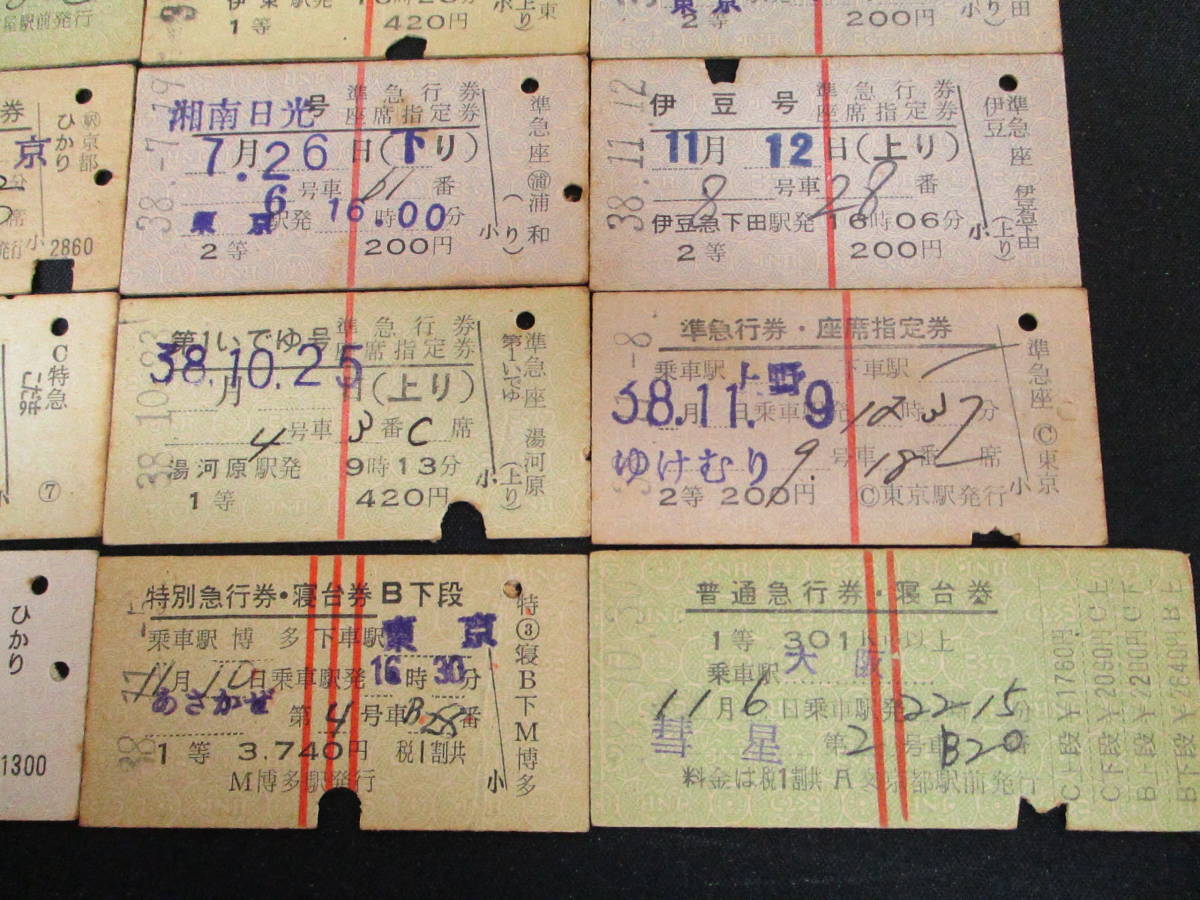 屋駅前発行
1等
420円
東京
2等
200円
小
田
券
京
ひかり
京都
小
2860
38.-7.19
湘南日光号
準急行券
座席指定券
7月.26日(下り)
6号車61番
東京駅発16.00時分
2等
200円
小
準急座㊟浦和
(り)
38.11.12
伊豆号
準急行券
座席指定券
11月12日(上り)
8号車28番
伊豆急下田駅発16時06分
2等
200円
小
準急座
伊豆
伊豆急下田
(上り)
C特急
こだま
小
⑦
38.10.23
第1いでゆ号
準急行券
座席指定券
38.10.25
月日(上り)
4号車3番C席
湯河原駅発9時13分
1等
420円
小
準急座 湯河原
第1いでゆ
(上り)
準急行券・座席指定券
乗車駅上野下車駅
38.11.9
月日乗車駅発12時37分
ゆけむり9号車18番席
2等200円
Ⓒ東京駅発行
小
準急座Ⓒ東京
ひかり
1300
特別急行券・寝台券B下段
乗車駅博多下車駅東京
11月10日乗車駅発16時30分
あさかぜ
第4号車B28番
1等3.740円
税1割共
M博多駅発行
小
特③寝B下M博多
普通急行券・寝台券
1等301キロ以上
乗車駅大阪
11月6日乗車駅発22-15分
彗星
第2号車B20
料金は税1割共
京都駅前発行
C上段¥1760円
C下段¥2090円
B上段¥2200円
B下段¥2640円
C上
C下
B上